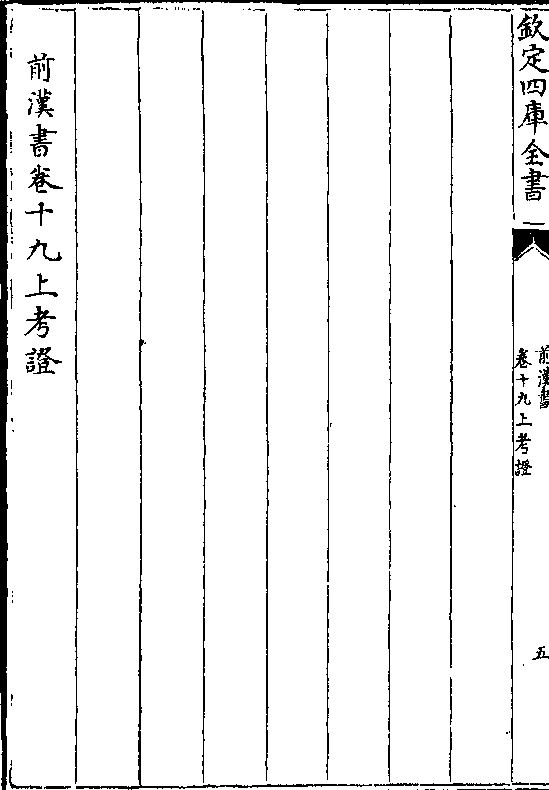 欽定四庫全書
前漢書
卷十九上考證
五
前漢書卷十九上考證